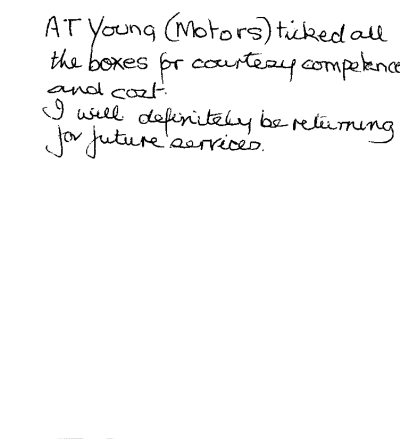 AT Young (Motors) ticked all
the boxes for courtesy competence
and cost.
I will definitely be returning
for future services.